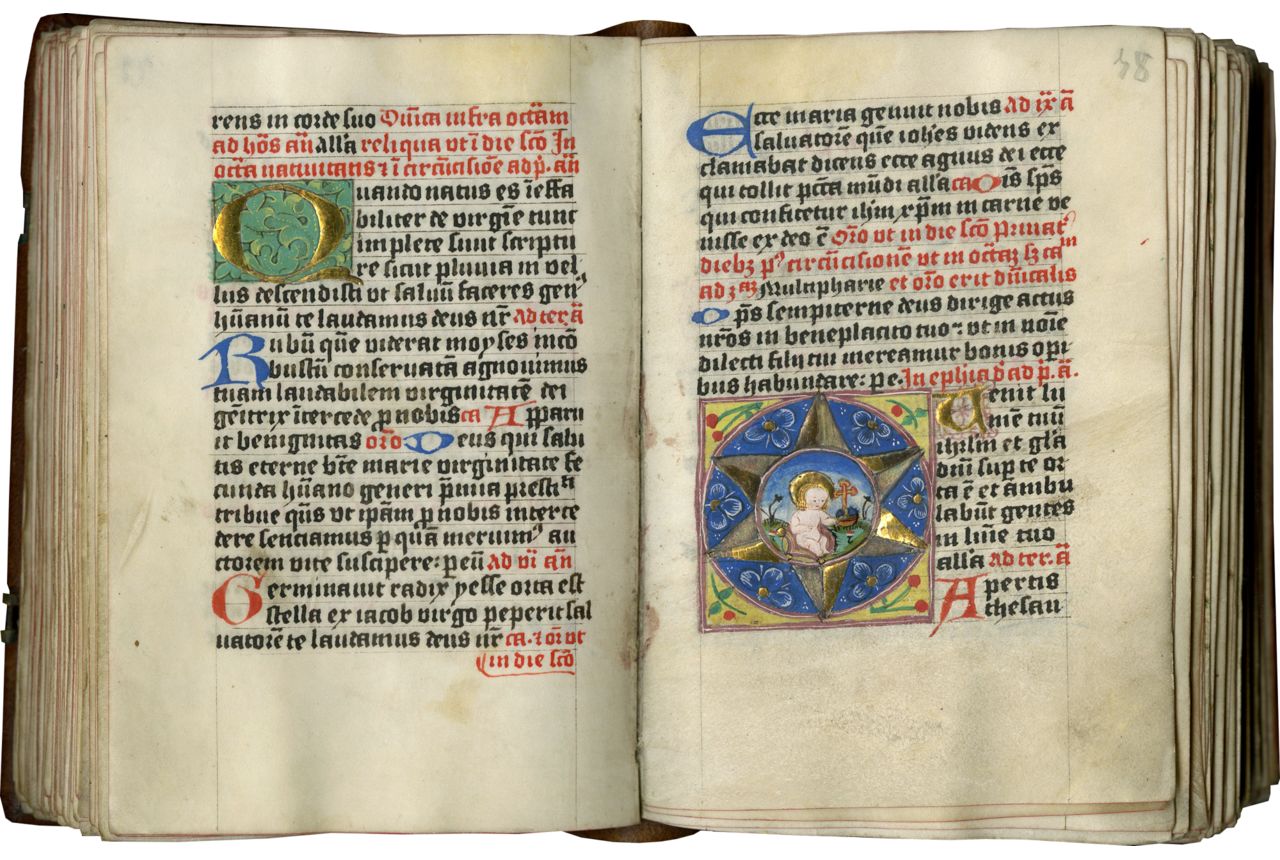 rens in corde suo Dñica infra octãm
ad hõs añ all'a reliqua ut ĩ die scõ In
octã nativitatis ⁊ ĩ circũcisiõe ad p̃. añ
Quando natus es ĩeffa
biliter de virgĩe tunc
implete sunt scriptu
re sicut pluvia in vel
lus descendisti ut salvũ faceres gen⁹
hũanũ te laudamus deus nr̃ ad ter. ã
Rubũ que viderat moyses incõ
bustũ conservatã agnovimus
tuam laudabilem virginitatẽ dei
geñtrix ĩtercede p nobis ca Apparu
it benignitas orõ Deus qui salu
tis eterne bt̃e marie virginitate fe
cunda hũano generi p̃mia presti
tribue q̃s ut ip̃am p nobis interce
dere senciamus p quã merum⁹ au
ctorem vite suscipere: p eũ ad vĩ añ
Germinavit radix yesse orta est
stella ex iacob virgo peperit sal
vatorẽ te laudamus deus nr̃ ca. ⁊ or̃ ut
in die scõ
48
Ecce maria genuit nobis ad ix ã
salvatorẽ quẽ ioh̃es videns ex
clamabat dicens ecce agnus dei ecce
qui tollit pctã mũdi all'a ca Oĩs sp̃s
qui confitetur ih̃m xp̃m in carne ve
nisse ex deo ẽ Orõ ut in die scõ Privat̃
dieb₃ p⁹ circũcisionẽ ut in octa₃ s₃ ca^m
ad ₃a₃ Multipharie et orõ erit dñicalis
Op̃s sempiterne deus dirige actus
nr̃os in beneplacito tuo: ut in noĩe
dilecti filij tui mereamur bonis opi
bus habundare: p e. In ephia p̃ ad p̃. ã.
Uenit lu
mẽ tuũ
ihrlm et gl'a
dñi sup te or
ta ẽ et ãmbu
labũt gentes
in luĩe tuo
all'a ad ter. ã
Apertis
thesau